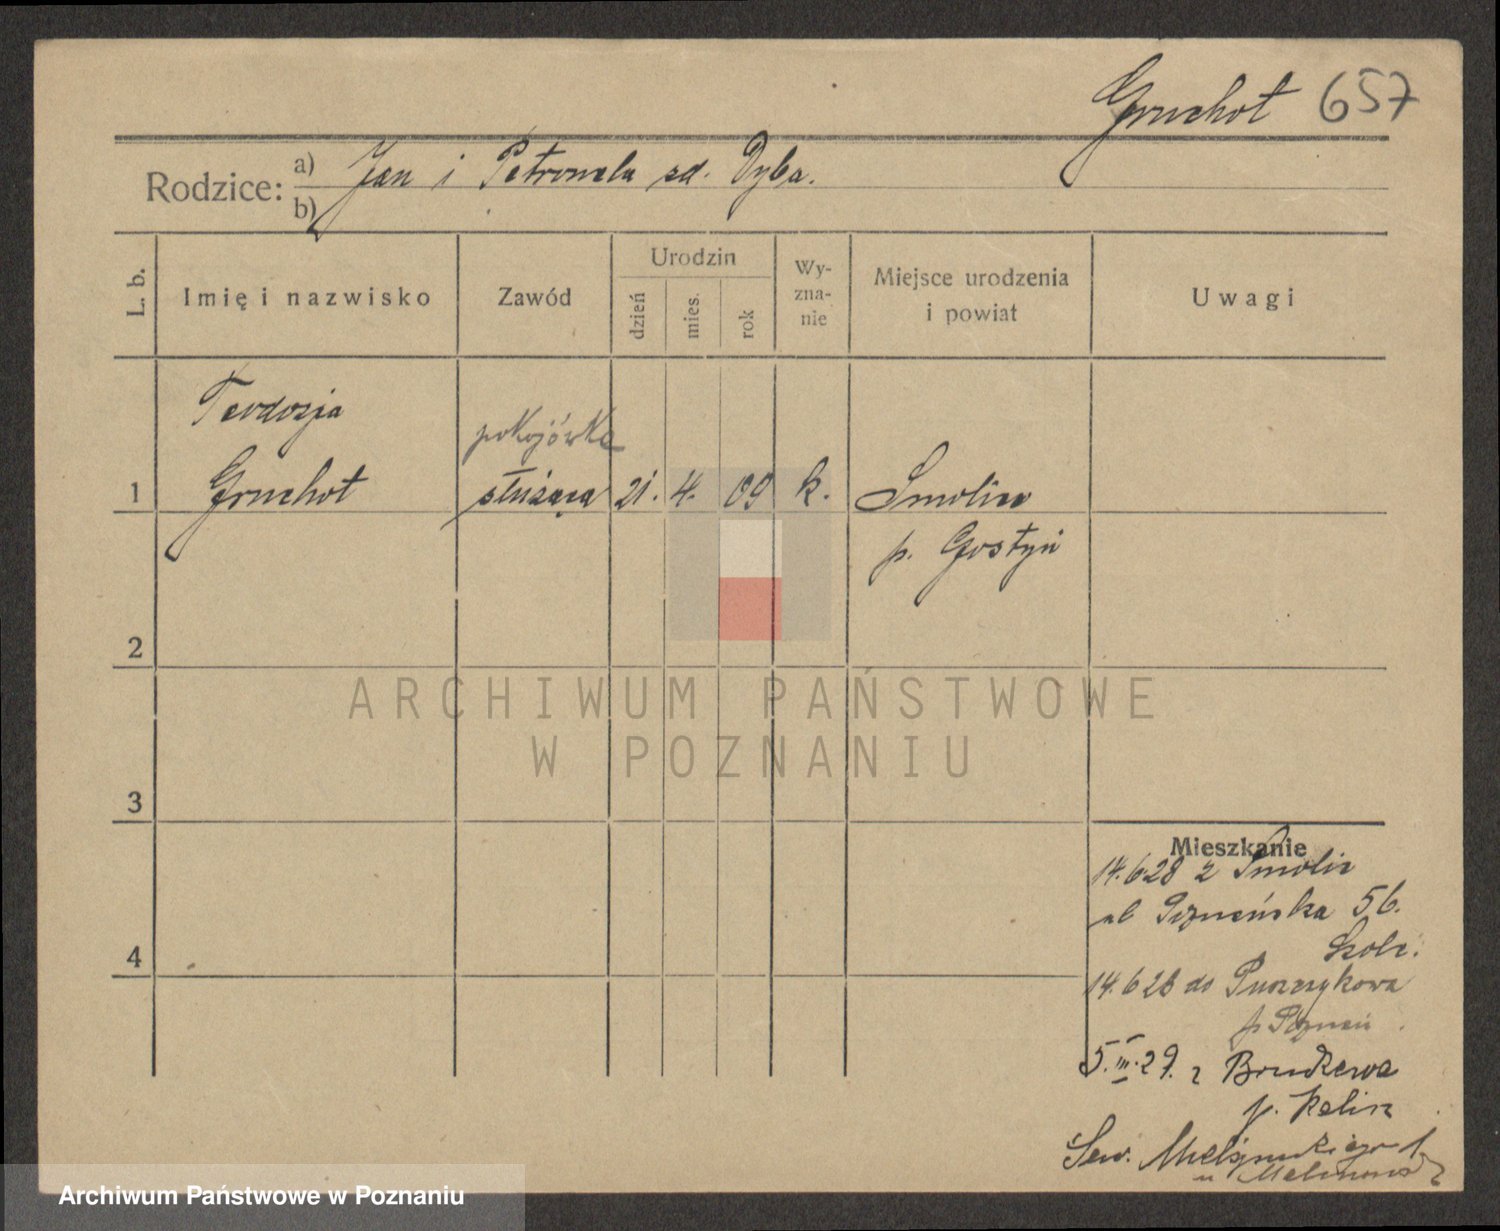 Gruchot 657
Rodzice: a) Jan i Petronela zd. Dyba.
b)
L. b.
Imię i nazwisko
Zawód
Urodzin
dzień
mies.
rok
Wy-
zna-
nie
Miejsce urodzenia
i powiat
Uwagi
Teodozja
pokojówka
1 Gruchot służąca 21. 4. 09 k. Smolice
p. Gostyń
2
ARCHIWUM PAŃSTWOWE
W POZNANIU
3
Mieszkanie
14.6 28 z Smolic
ul Poznańska 56.
4
14.6 28 do Puszczykowa
p Poznań
5.III.29. z
p. Kalisz
Sew. Mielżyńskiego 1
u
Archiwum Państwowe w Poznaniu